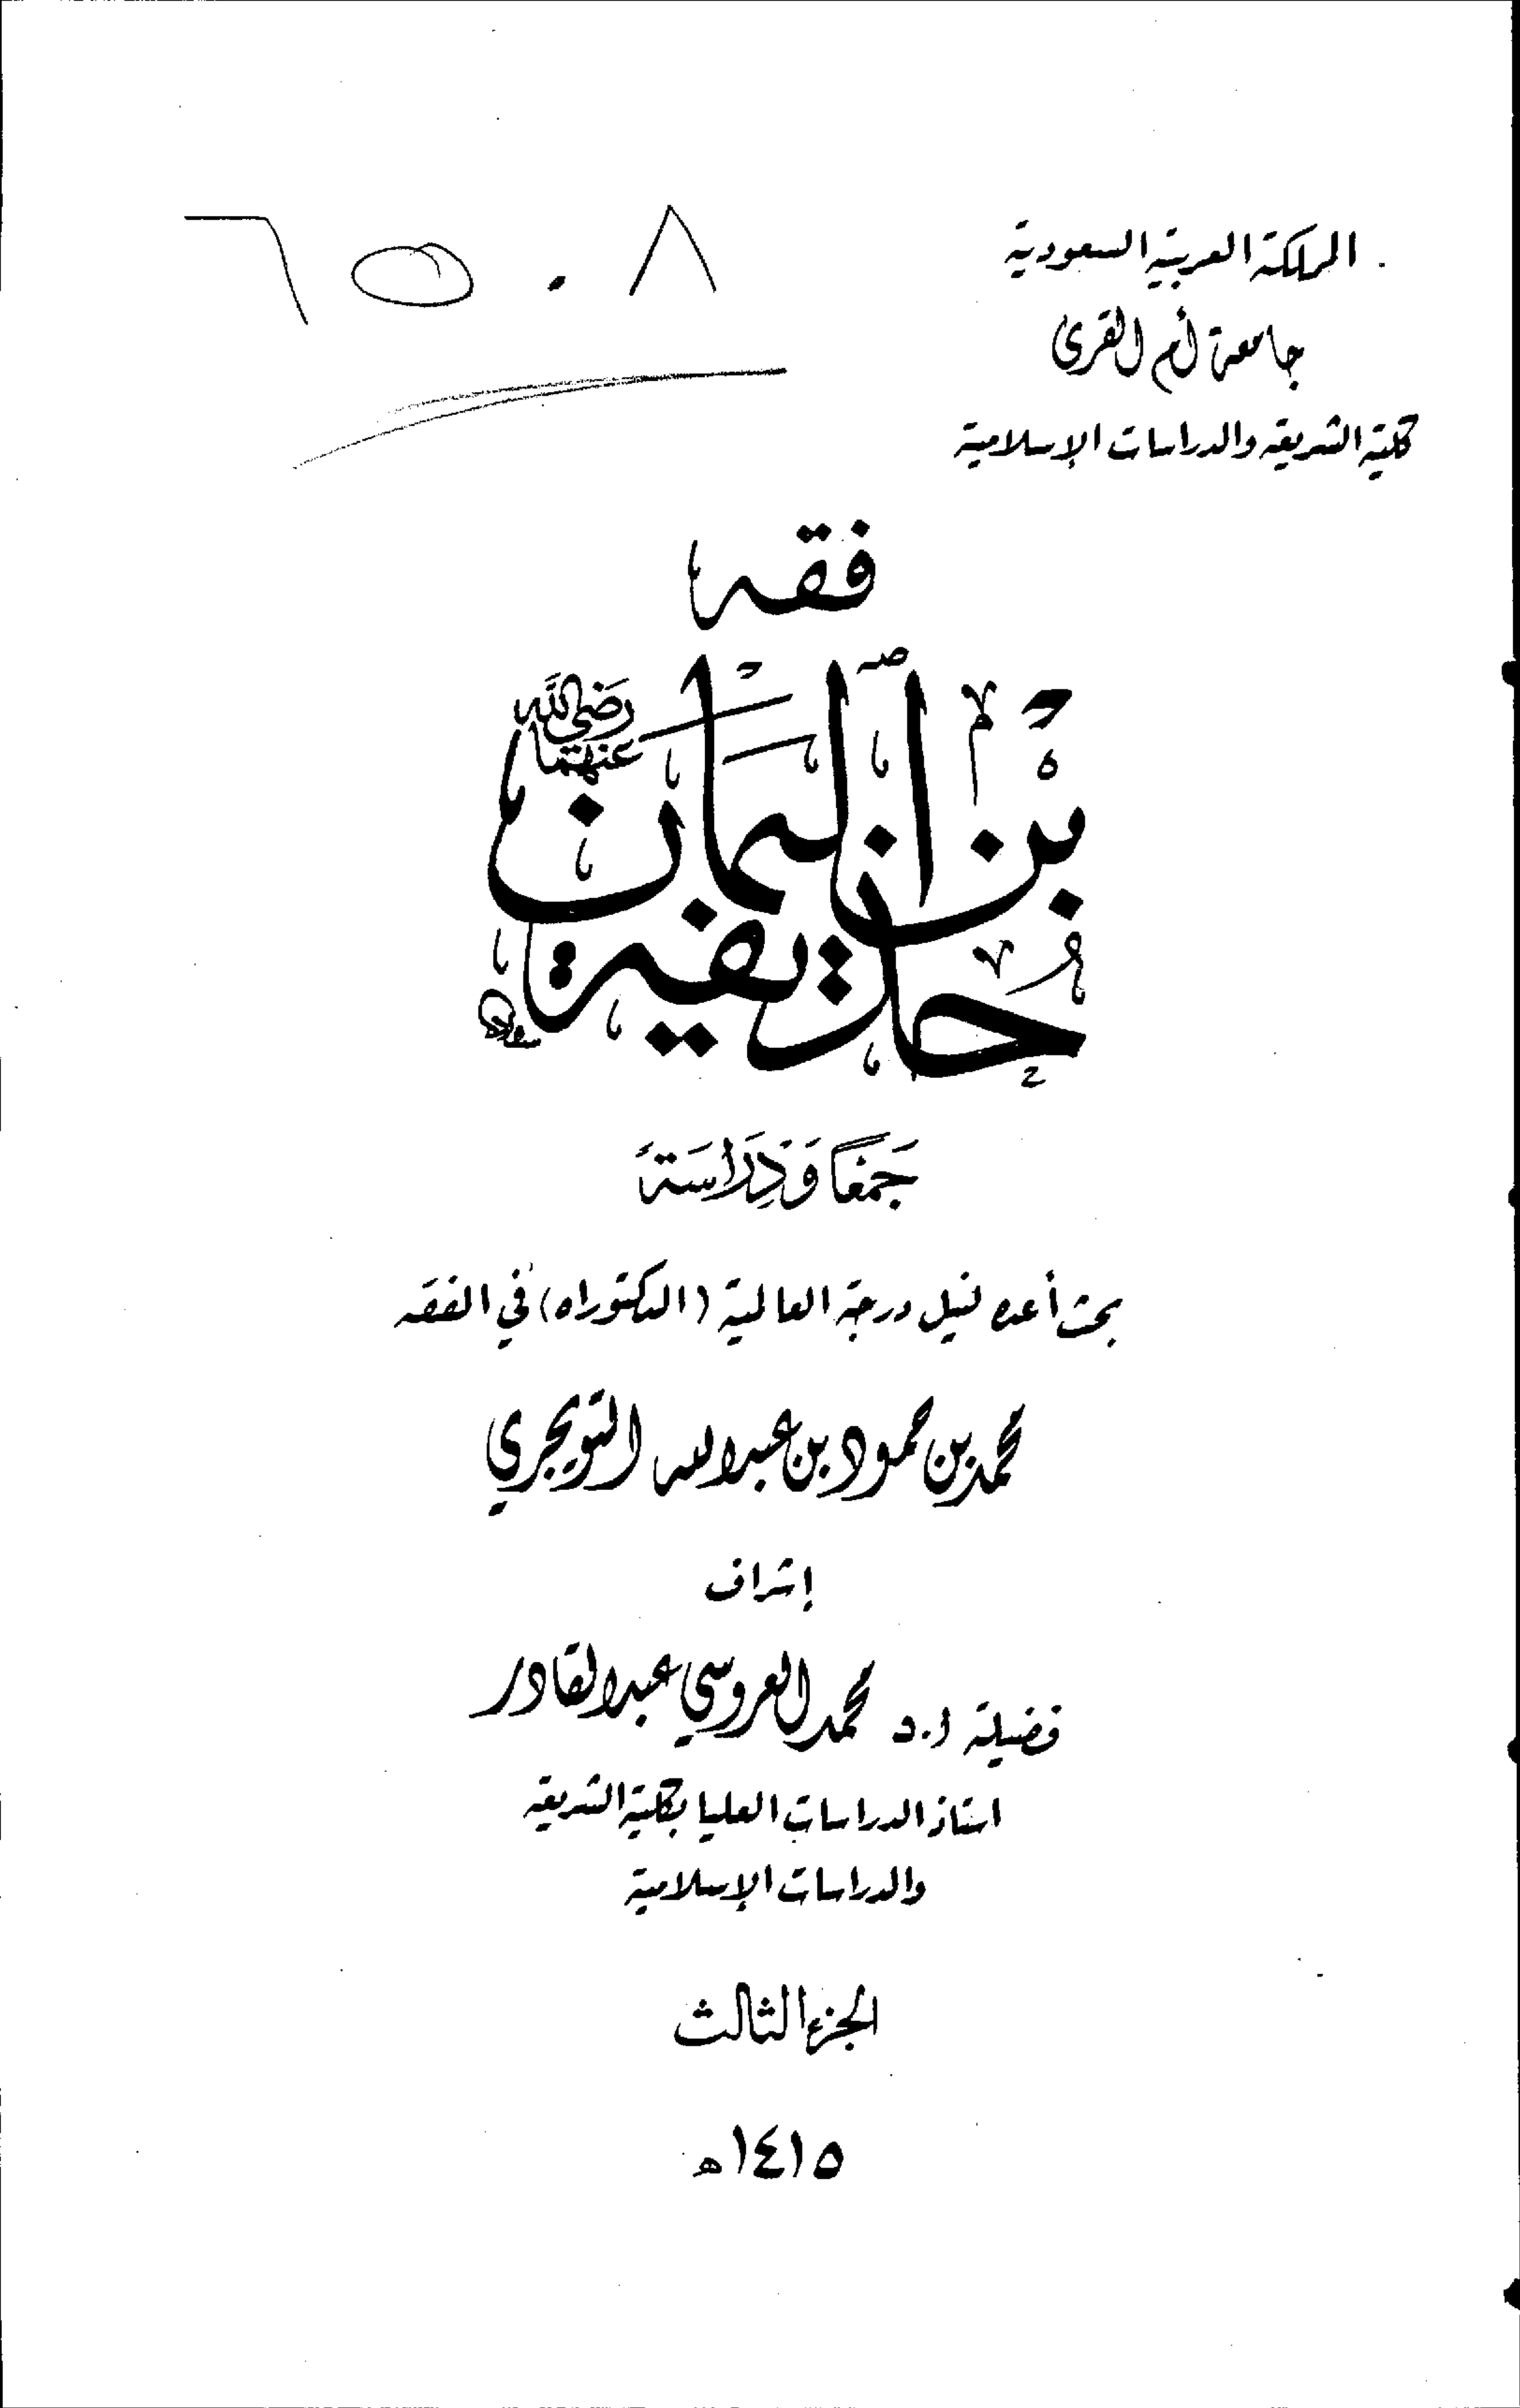 المملكة العربية السعودية
جامعة أم القرى
كلية الشريعة والدراسات الإسلامية
٦٥٠٨
فقه
حذيفة بن اليمان رضي الله عنهما
جَمْعًا وَدِرَاسَةً
بحث أعد لنيل درجة العالمية (الدكتوراه) في الفقه
محمد بن حمود بن عبدالله التويجري
إشراف
فضيلة أ.د محمد العروسي عبدالقادر
استاذ الدراسات العليا بكلية الشريعة
والدراسات الإسلامية
الجزء الثالث
١٤١٥ه